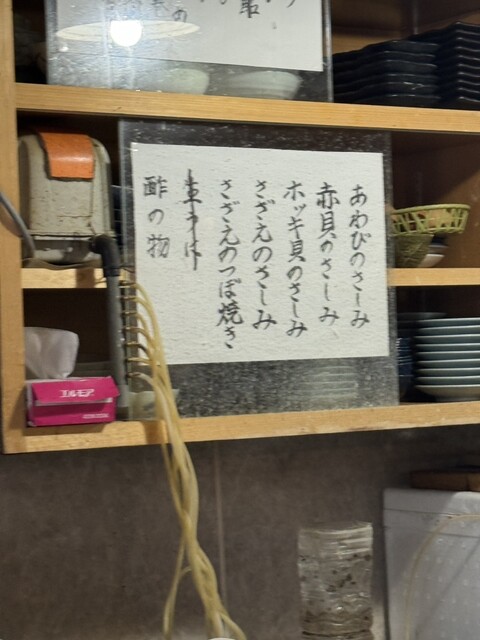 あわびのさしみ
赤貝のさしみ
ホッキ貝のさしみ
さざえのさしみ
さざえのつぼ焼き
酢の物
エルモア